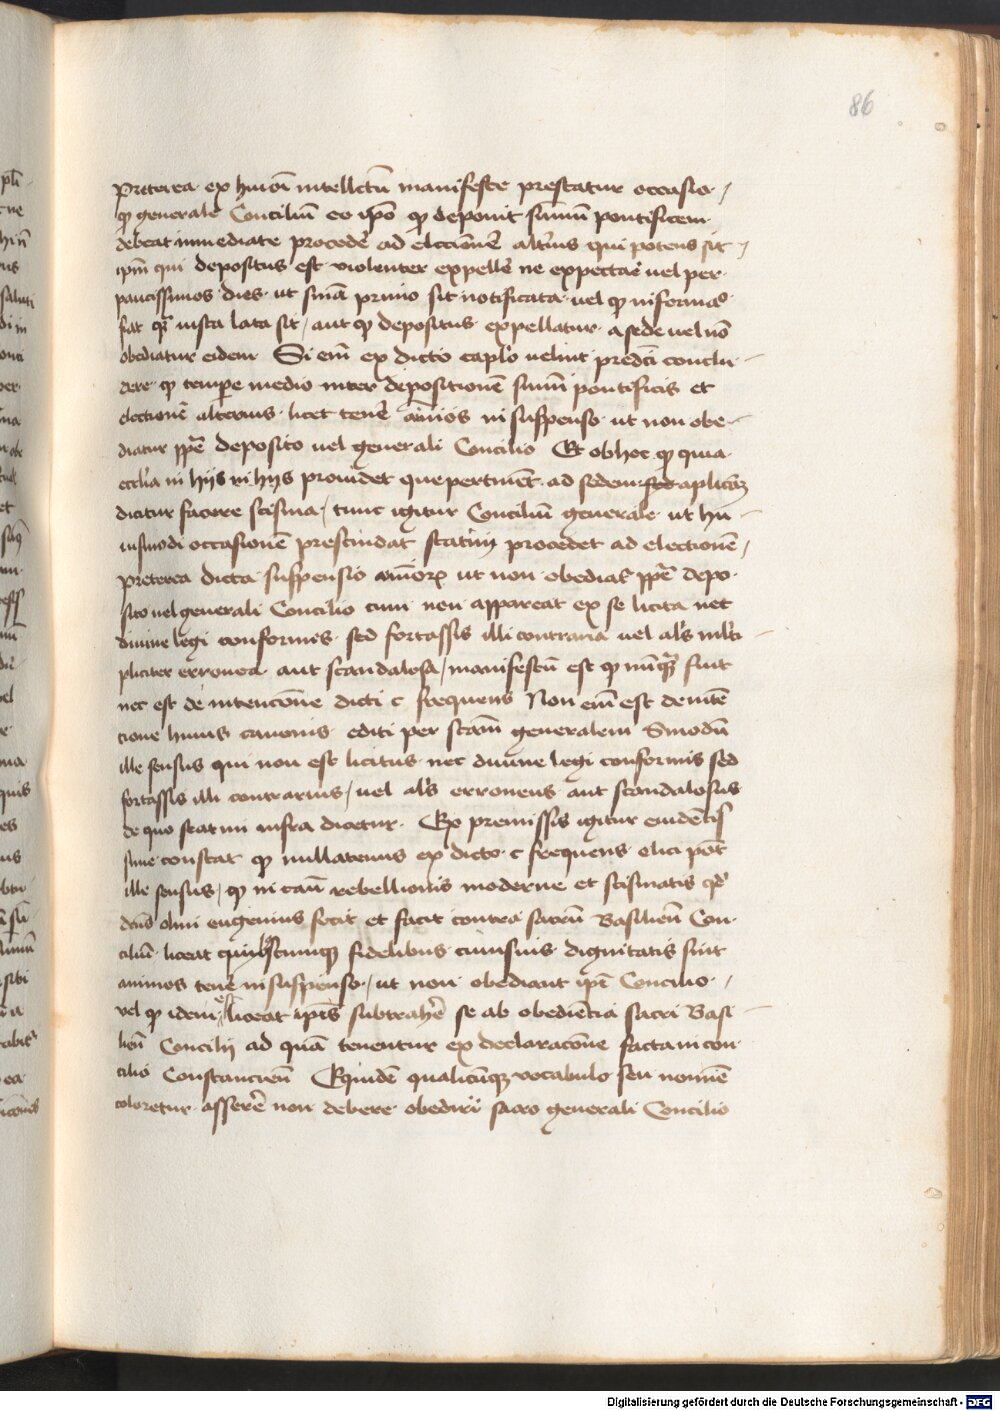 86
Preterea ex hmōi intellectū manifeste prestatur occasio /
qꝫ generale Conciliū eo ipō qꝫ deponit sūmū pontificem
debeat immediate procedē ad eleccionē alterius qui potens sit /
ipm̄ qui depositus est violenter expellē ne expectare vel per
paucissimos dies ut sniā primo sit notificata vel qꝫ informaō
fiat qꝫ iusta lata sit / aut qꝫ depositus expellatur a sede vel nō
obediatur eidem Si em̄ ex dicto caplō velint predcī conclu-
dere qꝫ tempore medio inter depositionē sūmi pontificis et
electionē alterius licet tenē aīmos in suspenso ut non obe-
diatur ppē deposito vel generali Concilio Et ob hoc qꝫ quia
eccl'ia in hijs in hijs prouidet que pertinēt ad sedem aplicā
dicitur facere scisma / tunc igitur Conciliū generale ut hu-
iusmodi occasionē prescindat statim procedet ad electionē /
preterea dicta suspensio aīmorꝝ ut non obediat' ppē depo-
sito vel generali Concilio cum non appareat ex se licita nec
diuine legi conformis sed fortassis illi contraria vel al's ml'ti-
pliciter erronea aut scandalosa / manifestū est qꝫ nūqꝫ fuit
nec est de intencōne dicti c frequens Non em̄ est de intē
cione huius canonis editi per scām generalem Sinodū
ille sensus qui non est licitus nec diuine legi conformis sed
fortassis illi contrarius / vel al's erroneus aut scandalosus
de quo statim infra dicetur Ex premissis igitur euidētis
sime constat qꝫ nullatenus ex dicto c frequens elici pōt
ille sensus / qꝫ in cāu rebellionis moderne et scismatis qd'
dnūs olim eugenius fecit et facit contra sacrū Basilien̄ Con-
ciliū liceat quibuscumqꝫ fidelibus cuiusuis dignitatis sint
animos tenē in suspenso / ut non obediant ipī Concilio /
vel qꝫ idem est liceat ipīs subtrahē se ab obediēncia sacri Basi-
lien̄ Concilij ad quā tenentur ex declaracōne facta in con-
cilio Constancien̄ Equidē qualicūqꝫ vocabulo seu nomīe
coloretur asserē non debere obediri sacro generali Concilio
Digitalisierung gefördert durch die Deutsche Forschungsgemeinschaft - DFG